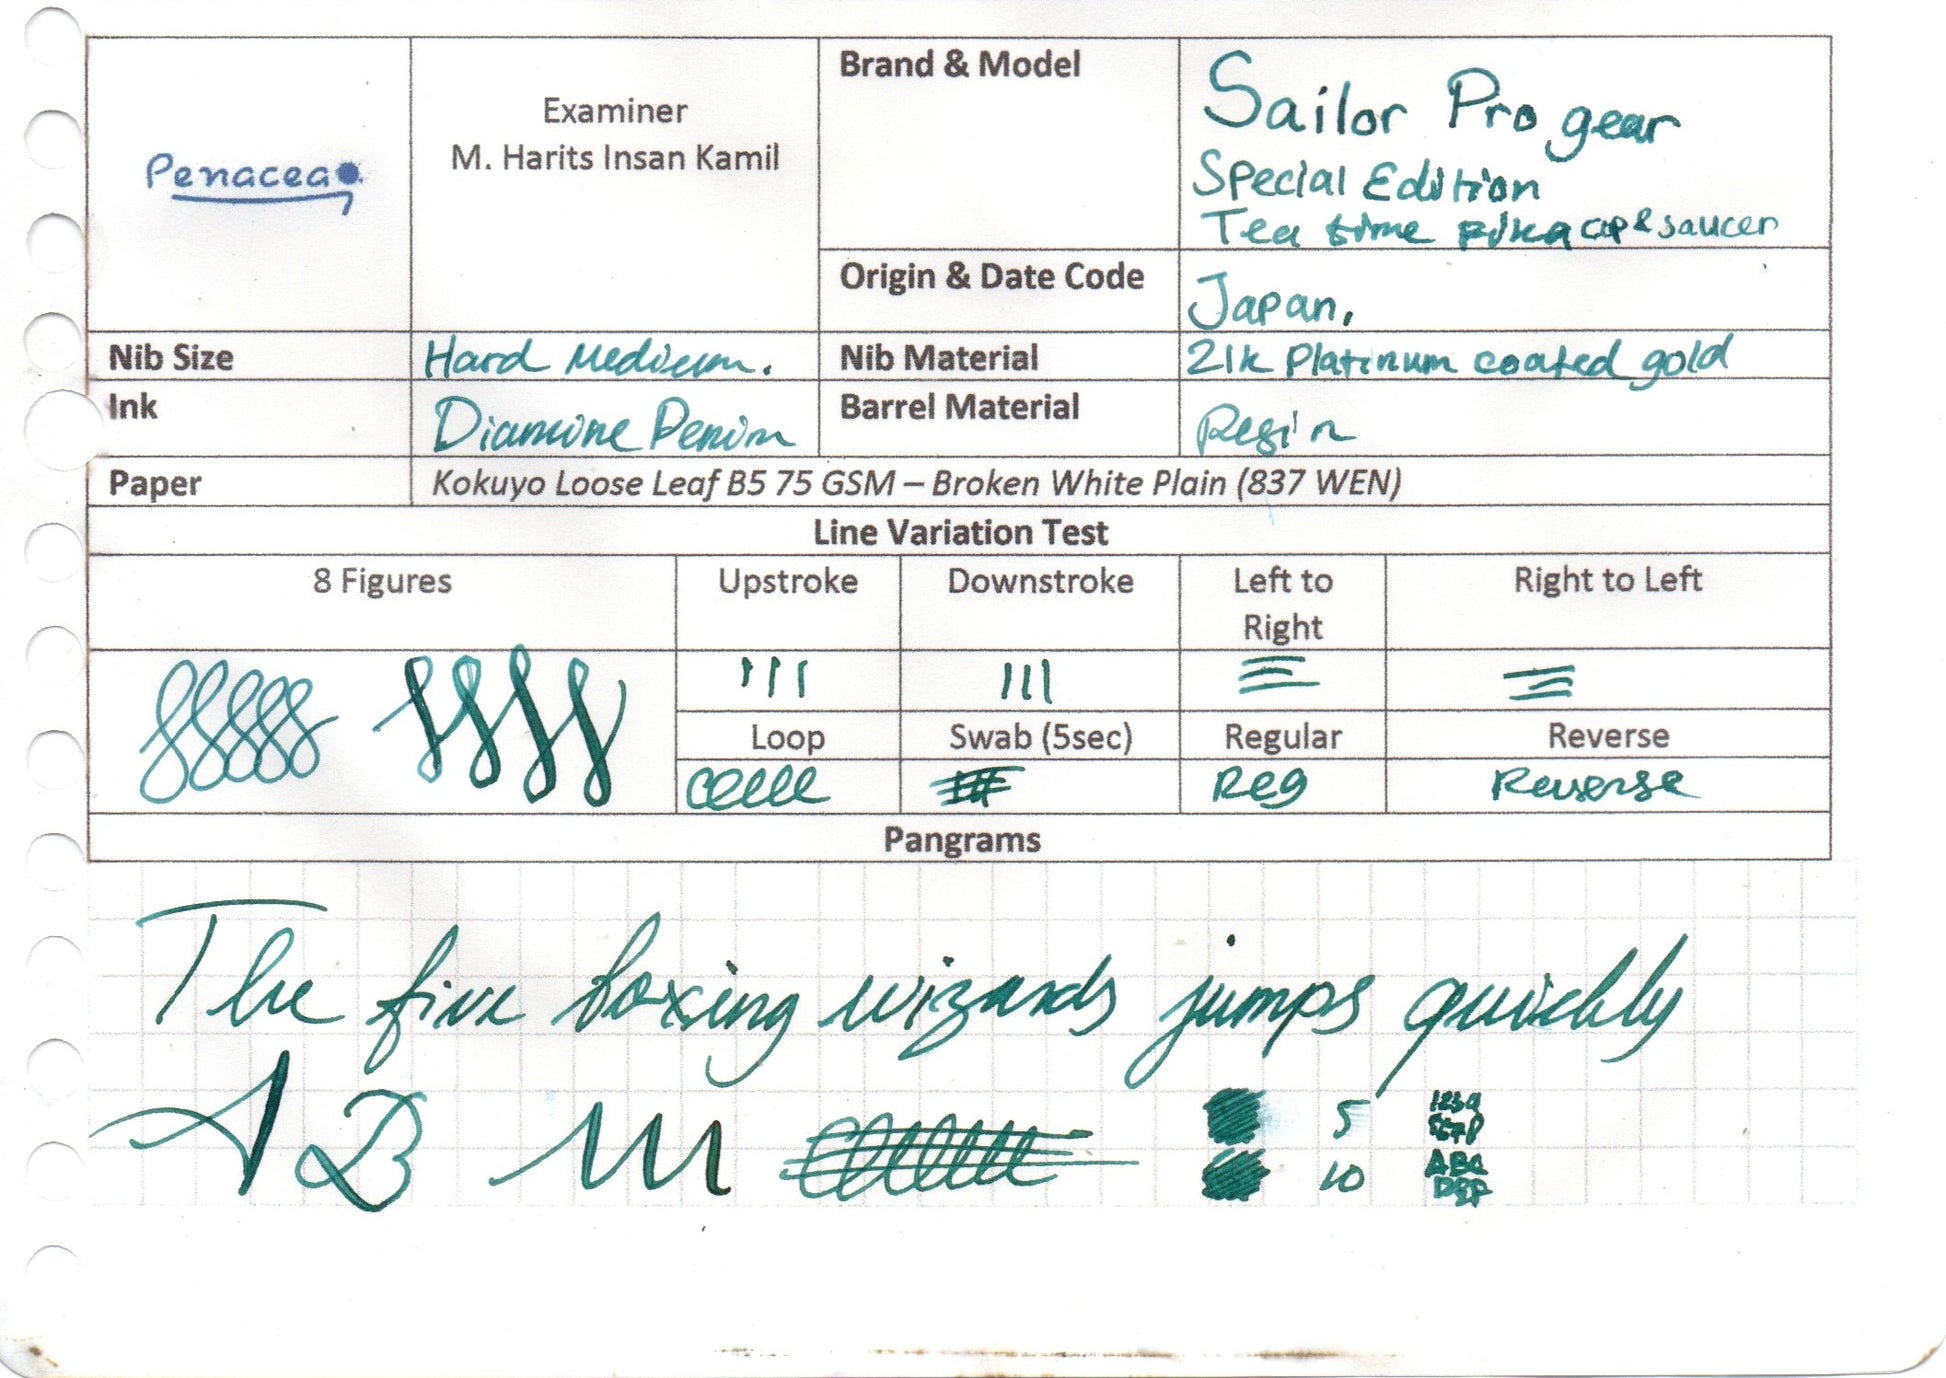 Penacea
Examiner
M. Harits Insan Kamil
Brand & Model
Sailor Pro gear
Special Edition
Tea time cup & saucer
Origin & Date Code
Japan.
Nib Size
Hard Medium.
Nib Material
21k Platinum coated gold
Ink
Diamine
Barrel Material
Resin
Paper
Kokuyo Loose Leaf B5 75 GSM – Broken White Plain (837 WEN)
Line Variation Test
8 Figures
Upstroke
Downstroke
Left to
Right
Right to Left
Loop
Swab (5sec)
Regular
Reverse
Reg
Reverse
Pangrams
The five boxing wizards jumps quickly
A B
5
10
ABC
DEF